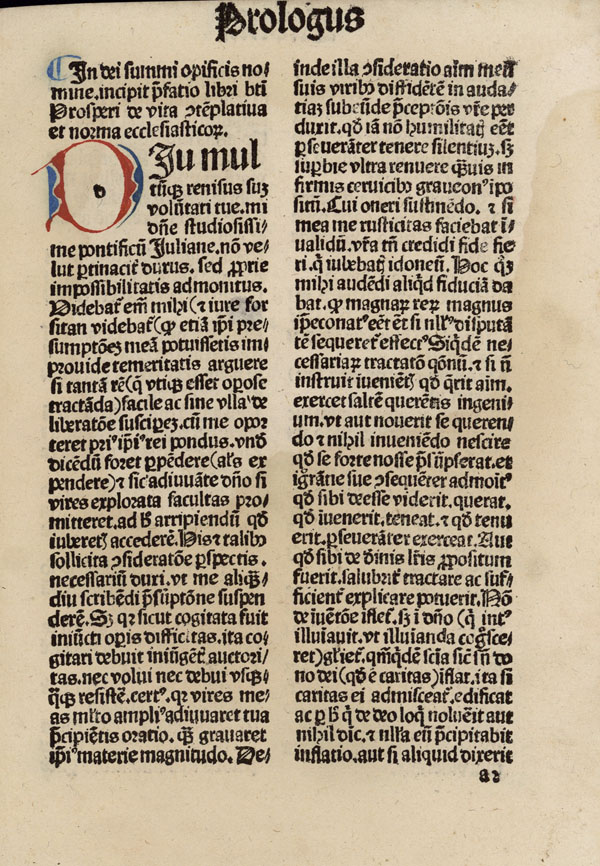 Prologus
In dei summi opificis no⸗
mine. incipit p̄fatio libri bti
Prosperi de vita ↄtēplatiua
et norma ecclesiasticoꝝ.
DIu mul
tūqꝫ renisus suꝫ
volūtati tue. mi
dn̄e studiosissi⸗
me pontificū Juliane. nō ve⸗
lut ꝑtinacit̄ durus. sed ꝓprie
impossibilitatis admonitus.
Videbat̄ em̄ mihi (⁊ iure for
sitan videbat̄ (ꝙ etiā ip̄i pre⸗
sumptōeꝫ meā potuissetis im⸗
prouide temeritatis arguere
si tantā rē (q̄ vtiqꝫ esset oꝑose
tractāda) facile ac sine vlla de
liberatōe susciꝑeꝫ. cū me opor
teret priꝰ ip̄iꝰ rei pondus. vnō
dicēdū foret ꝑpēdere (al's ex
pendere) ⁊ sic adiuuāte dn̄o si
vires explorata facultas pro⸗
mitteret. ad h̄ arripiendū qō
iuberet̄ accederē. His ⁊ talibꝰ
sollicita ↄsideratōe ꝑspectis.
necessariū duxi. vt me aliqꝫ⸗
diu scribēdi p̄suptōne suspen
derē. Sꝫ qꝛ sicut cogitata fuit
iniūcti oꝑis difficltas. ita co⸗
gitari debuit iniūgent̄ auctori⸗
tas. nec volui nec debui vsqꝫ⸗
q̄qꝫ resistē. certꝰ. qꝛ vires me⸗
as ml̄to ampliꝰ adiuuaret tua
p̄cipiētis oratio. qꝫ grauaret
ip̄iꝰ materie magnitudo. De⸗
inde illa ↄsideratio aim̄ meū
suis viribꝰ diffidētē in auda⸗
tiaꝫ subeūde p̄ceptōis vr̄e per
duxit. qō iā nō humilitatꝭ eēt
ꝑseuerāter tenere silentiuꝫ. sꝫ
suꝑbie vltra renuere qꝫuis in
firmis ceruicibꝰ graue onꝰ īpo
sitū. Cui oneri sustinēdo. ⁊ si
mea me rusticitas faciebat ī⸗
ualidū. vr̄a tn̄ credidi fide fie
ri. q̄ iubebatꝭ idoneū. Hoc qꝫ
mihi audēdi aliqd̄ fiduciā da
bat. ꝙ magnaꝝ reꝝ magnus
īpeconatꝰ eēt ⁊ et si nll'ꝰ disputā
tē sequeret̄ effectꝰ. Siqd̄em ne⸗
cessariaꝝ tractatō qōnū. ⁊ si n̄
instruit īueniētē qō q̄rit aim̄.
exercet saltē querētis ingeni⸗
um. vt aut nouerit se queren⸗
do ⁊ nihil inueniēdo nescire
qō se forte nosse p̄sūpserat. et
igrātie sue ↄsequēter admoitꝰ
qō sibi deesse viderit. querat.
qō īuenerit. teneat. ⁊ qō tenu
erit. ꝑseuerāter exerceat. Aut
qō sibi de diuinis lr̄is ꝓpositum
fuerit. salubrit̄ tractare ac suf⸗
ficient̄ explicare potuerit. Nō
de īuētōe īflet̄. sꝫ ī dn̄o (q̄ intꝰ
illuīauit. vt illuīanda cogsce⸗
ret) gl'iet̄. qm̄qd̄em scīa sic sn̄ do
no dei (qō ē caritas) īflat. ita si
caritas ei admisceat̄. edificat
ac ꝑ h̄ q̄ de deo loq̄ noluēit aut
nihil dic̄. ⁊ nll'a eū p̄cipitabit
inflatio. aut si aliquid dixerit
a2